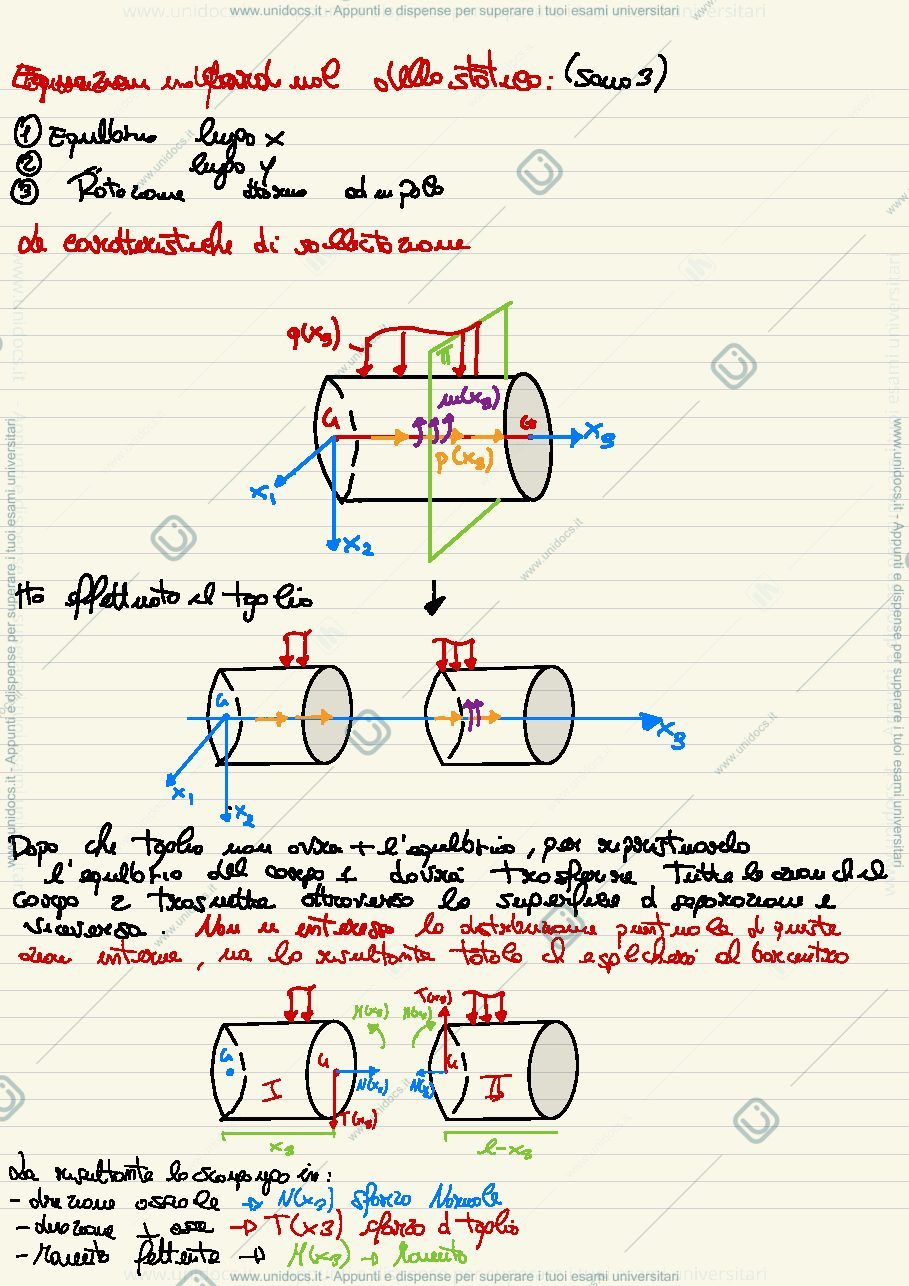 www.unidocs.it - Appunti e dispense per superare i tuoi esami universitari
Equazioni cardinali della statica: (sono 3)
① Equilibrio lungo x
② lungo y
③ Rotazione attorno ad un polo
Le caratteristiche di sollecitazione
q(x3)
π
m(x3)
G
G
x3
p(x3)
x1
x2
Ho effettuato il taglio
G
x3
x1
x2
Dopo che taglio non avrà + l'equilibrio, per ripristinarlo
l'equilibrio del corpo 1 dovrà trasferire tutte le azioni ch il
corpo 2 trasmette attraverso la superficie d separazione e
viceversa. Non mi interessa la distribuzione puntuale d queste
azioni interne, ma la risultante totale ch applicherò al baricentro
T(x3)
M(x3) M(x3)
G
G
G
I
N(x3)
N(x3)
II
T(x3)
x3
l-x3
La risultante la scompongo in:
- direzione assiale → N(x3) sforzo Normale
- direzione ⊥ asse → T(x3) sforzo d taglio
- Momento flettente → M(x3) → Momento
www.unidocs.it - Appunti e dispense per superare i tuoi esami universitari